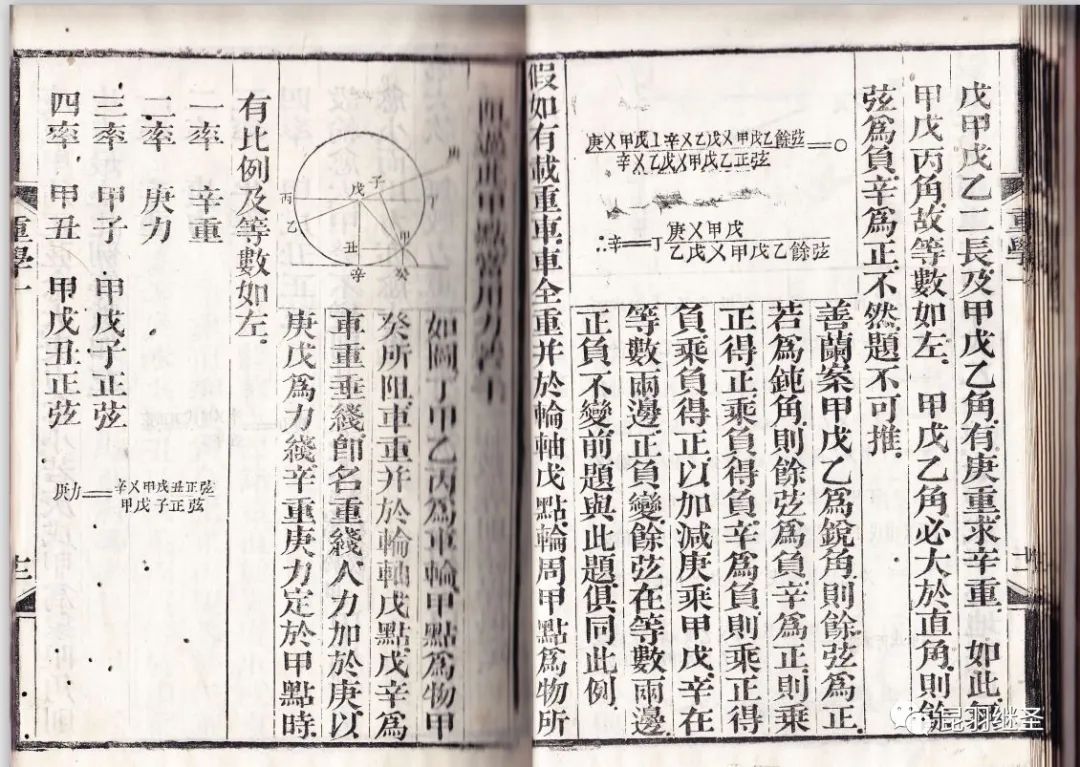 戊甲戊乙二長及甲戊乙角有庚重求辛重如此無
甲戊丙角故等數如左甲戊乙角必大於直角則餘
弦爲負辛爲正不然題不可推
善蘭案甲戊乙爲銳角則餘弦爲正
若爲鈍角則餘弦爲負辛爲正則乘
正得正乘負得負辛爲負則乘正得
負乘負得正以加減庚乘甲戊辛在
等數兩邊正負變餘弦在等數兩邊
正負不變前題與此題俱同此例
庚乂甲戊丄辛乂乙戊乂甲戊乙餘弦
辛乂乙戊乂甲戊乙正弦
═〇
∴辛═丅
庚乂甲戊
乙戊乂甲戊乙餘弦
假如有載重車車全重并於輪軸戊點輪周甲點爲物所
阻過此甲點當用力若干
如圖丁甲乙丙爲車輪甲點爲物甲
癸所阻車重并於輪軸戊點戊辛爲
車重垂綫卽名重綫人力加於庚以
庚戊爲力綫辛重庚力定於甲點時
丙
乙
戊
子
丑
辛
甲
癸
丁
庚
有比例及等數如左
一率 辛重
二率 庚力
三率 甲子 甲戊子正弦
四率 甲丑 甲戊丑正弦
庚力═
辛乂甲戊丑正弦
甲戊子正弦
重學一
重學一
三
昆羽继圣